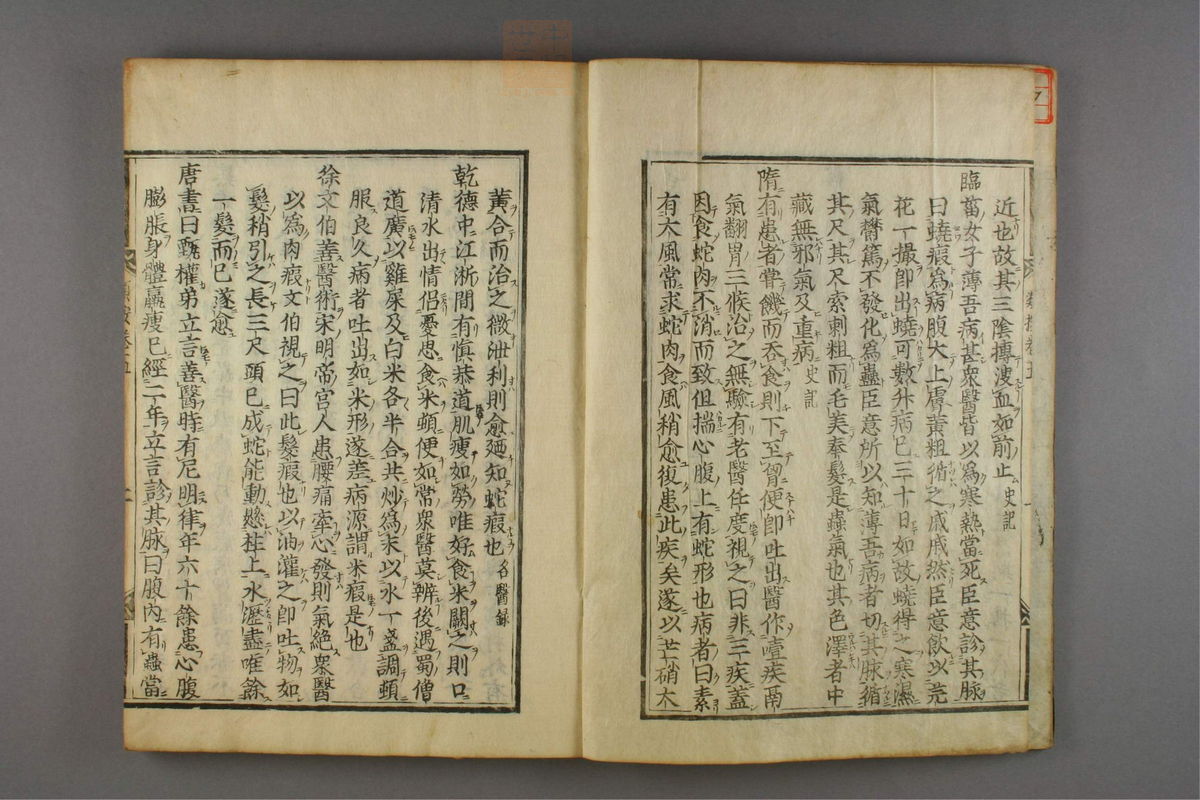 近也故其三陰搏溲血如前止史記
臨菑女子薄吾病甚衆醫皆以爲寒熱當死臣意診其脉
曰蟯瘕爲病腹大上膚黃粗循之戚戚然臣意飲以芫
花一撮即出蟯可數升病已三十日如故蟯得之寒濕
氣欝篤不發化爲蟲臣意所以知薄吾病者切其脉循
其尺其尺索刺粗而毛美奉髮是蟲氣也其色澤者中
藏無邪氣及重病史記
隋有患者嘗饑而吞食則下至胷便即吐出醫作噎疾鬲
氣翻胃三候治之無驗有老醫任度視之曰非三疾蓋
因食蛇肉不消而致但揣心腹上有蛇形也病者曰素
有大風常求蛇肉食風稍愈復患此疾矣遂以芒硝大
黃合而治之微泄利則愈廼知蛇瘕也名醫録
乾德中江浙間有愼恭道肌瘦如勞唯好食米闕之則口
清水出情似憂思食米頓便如常衆醫莫辨後遇蜀僧
道廣以雞屎及白米各半合共炒爲末以水一盞調頓
服良久病者吐出如米形遂差病源謂米瘕是也
徐文伯善醫術宋明帝宮人患腰痛牽心發則氣絶衆醫
以爲肉瘕文伯視之曰此髮瘕也以油灌之即吐物如
髮稍引之長三尺頭已成蛇能動懸柱上水瀝盡唯餘
一髮而已遂愈
唐書曰甄權弟立言善醫時有尼明律年六十餘患心腹
膨脹身體羸瘦已經二年立言診其脉曰腹內有蟲當